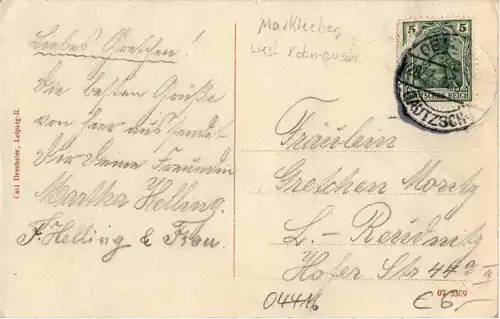 Liebes Gretchen!
Die besten Grüße
von hier aus sendet
Dir Deine Freundin
Martha Helling.
F. Helling & Frau.
Markkleeberg
west
5 5
DEUTSCHES REICH
OETZSCH
Fräulein
Gretchen Moritz
L.-Reudnitz
Hofer Str 44
Carl Drechsler, Leipzig-R.
07 5309
0441b
€ 6,-